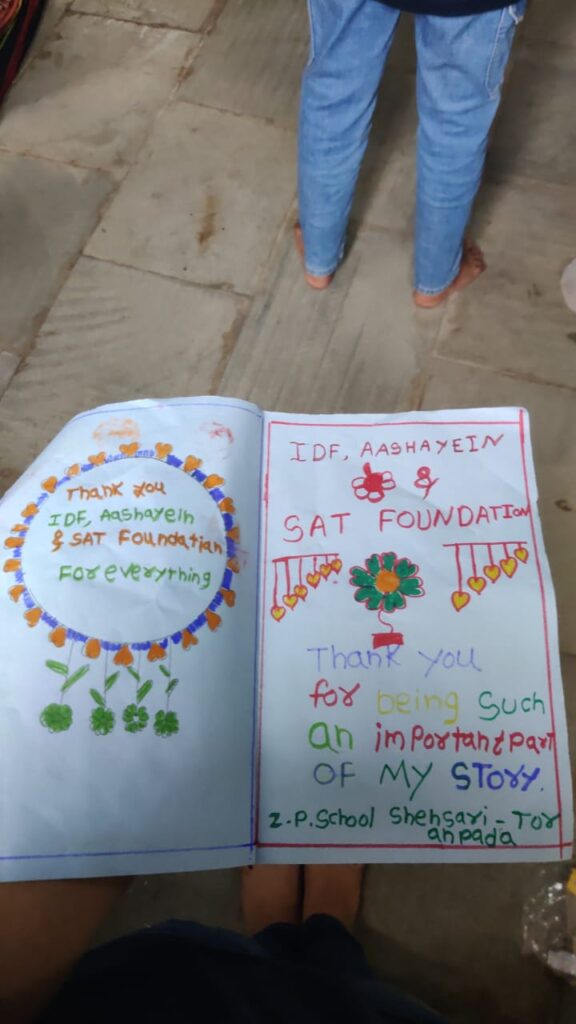 Thank you
IDF, Aashayein
& SAT Foundation
For everything
IDF, AASHAYEIN
&
SAT FOUNDATION
Thank you
for being such
an important part
OF MY STORY.
Z.P. School Shensari - Tor
anpada